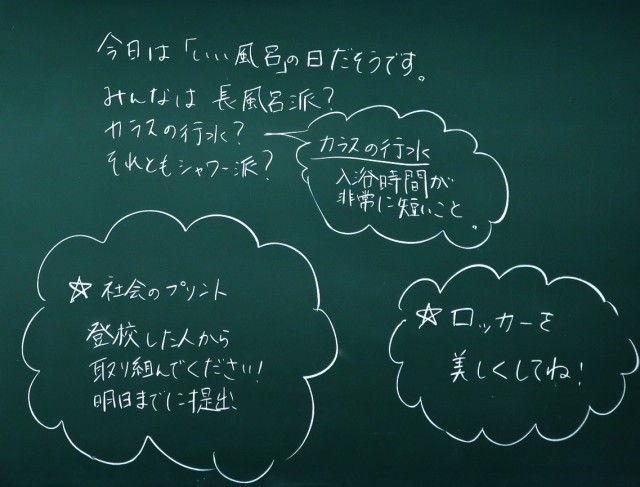 今日は「いい風呂」の日だそうです。
みんなは 長風呂派?
カラスの行水?
それともシャワー派?
カラスの行水
入浴時間が
非常に短いこと。
☆ 社会のプリント
登校した人から
取り組んでください!
明日までに提出!
☆ ロッカーを
美しくしてね!